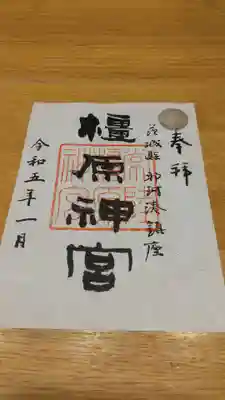 奉拝
茨城縣 那珂湊鎮座
橿原神宮
令和五年一月